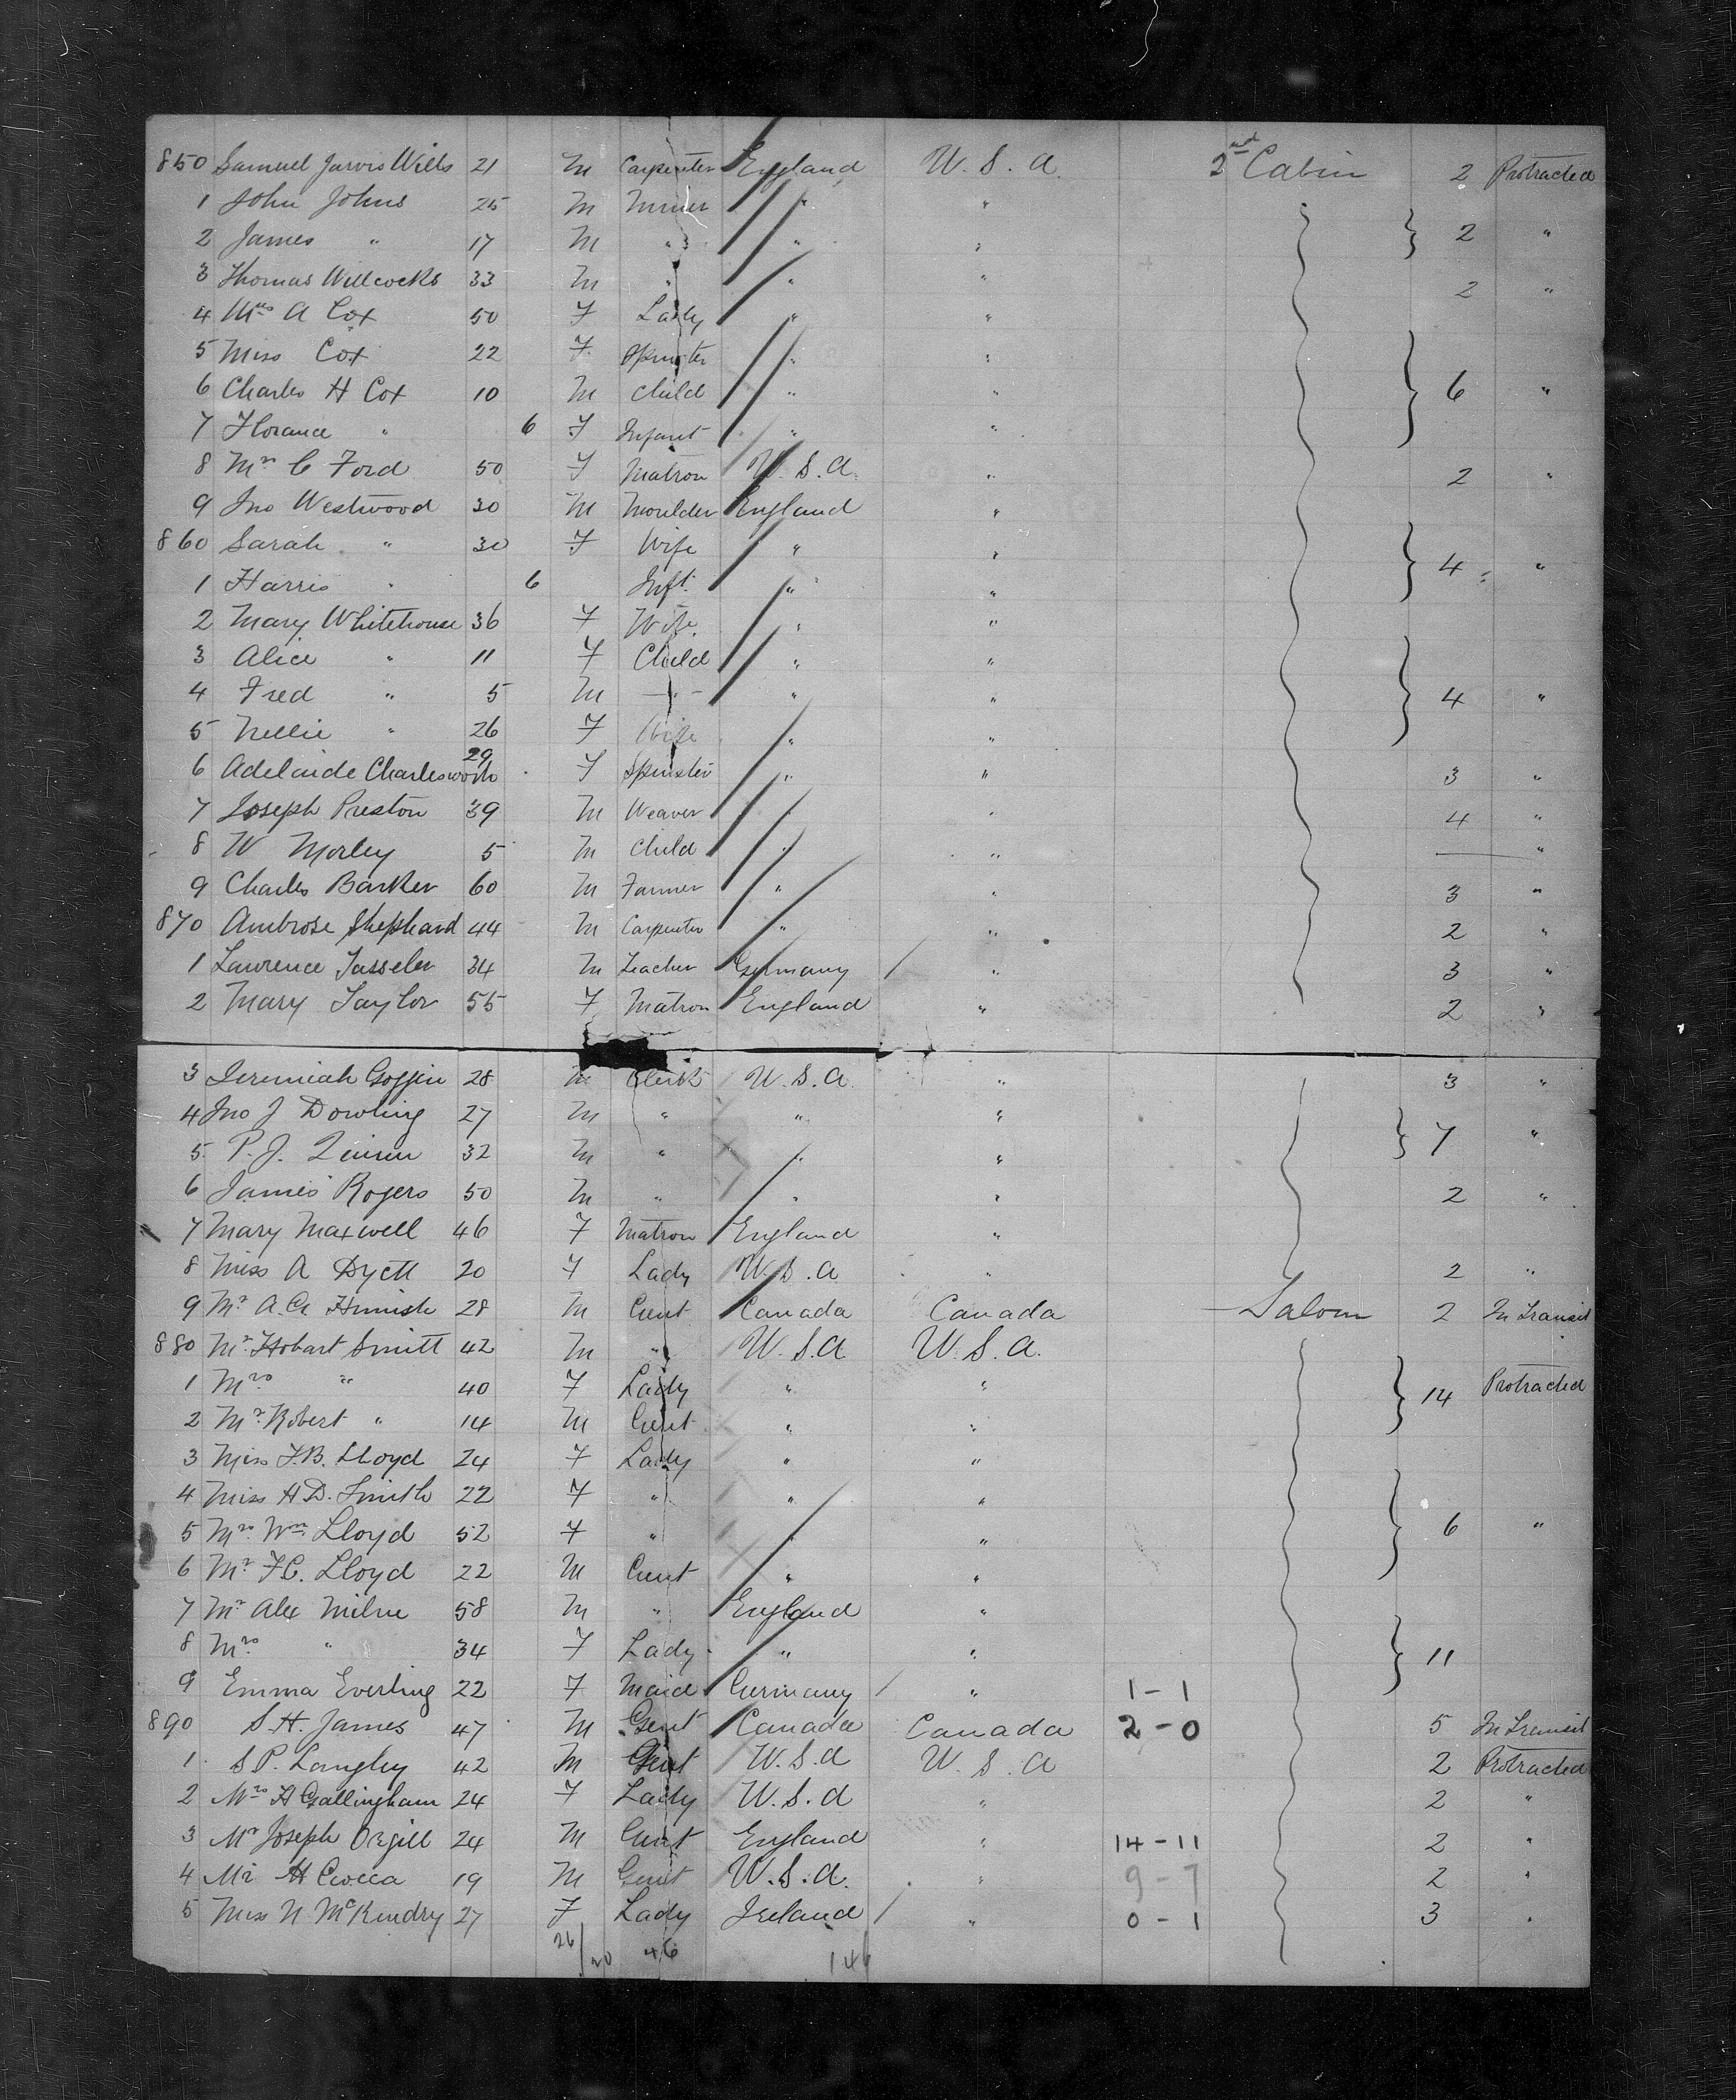 850 Samuel Jarvis Wills 21 M Carpenter England U.S.A. 2nd Cabin 2 Protracted
1 John Johns 25 M Miner " "
2 James " 17 M " " " 2 "
3 Thomas Willcocks 33 M " " " 2 "
4 Mrs A Cox 50 F Lady " "
5 Miss Cox 22 F Spinster " "
6 Charles H Cox 10 M Child " " 6 "
7 Florance " 6 F Infant " "
8 Mrs C Ford 50 F Matron U.S.A. " 2 "
9 Jno Westwood 30 M Moulder England "
860 Sarah " 30 F Wife " " 4 "
1 Harris " 6 Inft. " "
2 Mary Whitehouse 36 F Wife " "
3 Alice " 11 F Child " "
4 Fred " 5 M " " " 4 "
5 Nellie " 26 F Wife " "
6 Adelaide Charlesworth 29 F Spinster " " 3 "
7 Joseph Preston 39 M Weaver " " 4 "
8 W Morley 5 M Child " " — "
9 Charles Barker 60 M Farmer " " 3 "
870 Ambrose Shephard 44 M Carpenter " " 2 "
1 Lawrence Tasseler 34 M Teacher Germany / " 3 "
2 Mary Taylor 55 F Matron England " 2 "
3 Jeremiah Goggin 28 M Clerk U.S.A. " 3 "
4 Jno J Dowling 27 M " " "
5 P.J. 32 M " " " 7 "
6 James Rogers 50 M " " " 2 "
7 Mary Maxwell 46 F Matron England "
8 Miss A Dyett 20 F Lady U.S.A " 2 "
9 Mr A. 28 M Gent Canada Canada Saloon 2 In Transit
880 Mr Hobart Smith 42 M " U.S.A U.S.A.
1 Mrs " 40 F Lady " " 14 Protracted
2 Mr Robert " 14 M Gent " "
3 Miss F.B. Lloyd 24 F Lady " "
4 Miss H D. Smith 22 F " " "
5 Mrs Wm Lloyd 52 F " " " 6 "
6 Mr F C. Lloyd 22 M Gent " "
7 Mr Alex Milne 58 M " England "
8 Mrs " 34 F Lady " " 11
9 Emma Everling 22 F Maid Germany / " 1-1
890 S.H. James 47 M Gent Canada Canada 2-0 5 In Transit
1 S P. Langley 42 M Gent U.S.A U.S.A 2 Protracted
2 Mrs H Gallingham 24 F Lady U.S.A " 2 "
3 Mr Joseph Orgill 24 M Gent England " 14-11 2 "
4 Mr H Crocca 19 M Gent U.S.A. " 9-7 2 "
5 Miss N McKendry 27 F Lady Ireland / " 0-1 3 "
26/20 46 146